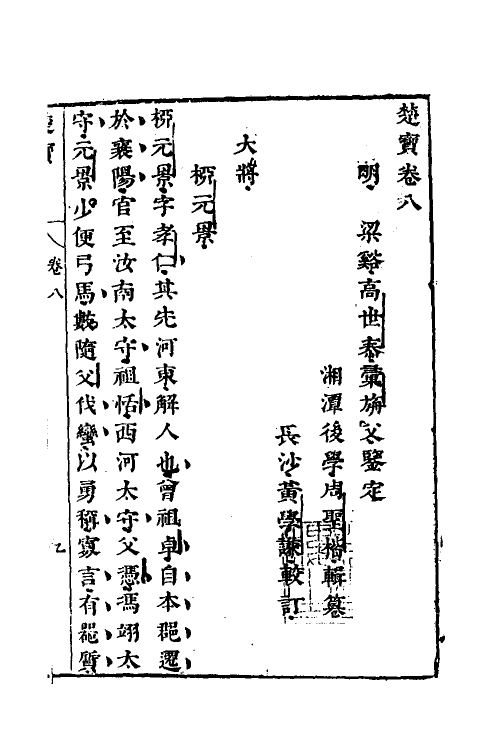 楚寶卷八
明　梁谿高世泰彙旃父鑒定
湘潭後學周聖楷輯纂
長沙黃學謙較訂
大將
栁元景
栁元景字孝仁其先河東解人也曾祖卓自本郡遷
於襄陽官至汝南太守祖恬西河太守父憑馮翊太
守元景少便弓馬數隨父伐蠻以勇稱寡言有器質
楚寶
卷八
乙